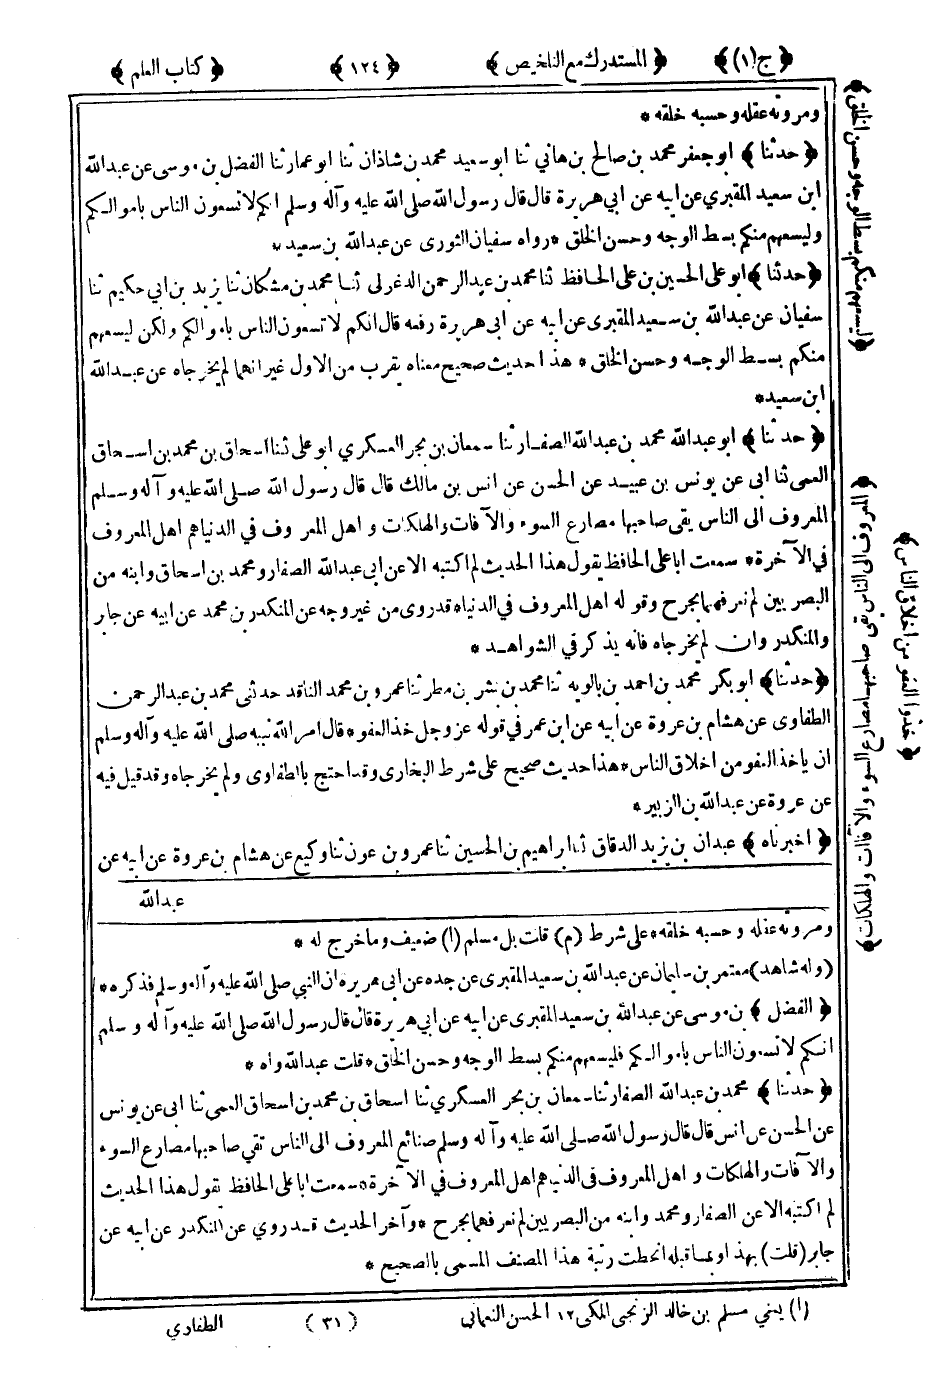 ﴿ ج (١) ﴾ ﴿ المستدرك مع التلخيص ﴾ ﴿ ١٢٤ ﴾ ﴿ كتاب العلم ﴾
ومروته عقله وحسبه خلقه *
﴿ حدثنا ﴾ ابو جعفر محمد بن صالح بن هاني ثنا ابو سعيد محمد بن شاذان ثنا ابو عمار ثنا الفضل بن موسى عن عبد الله
ابن سعيد المقبري عن ابيه عن ابي هريرة قال قال رسول الله صلى الله عليه وآله وسلم انكم لا تسعون الناس باموالكم
وليسعهم منكم بسط الوجه وحسن الخلق * رواه سفيان الثورى عن عبد الله بن سعيد *
﴿ حدثنا ﴾ ابو على الحسين بن على الحافظ ثنا محمد بن عبد الرحمن الدغولى ثنا محمد بن مشكان ثنا يزيد بن ابي حكيم ثنا
سفيان عن عبد الله بن سعيد المقبرى عن ابيه عن ابى هريرة رفعه قال انكم لا تسعون الناس باموالكم ولكن ليسعهم
منكم بسط الوجه وحسن الخلق * هذا حديث صحيح معناه يقرب من الاول غير انهما لم يخرجاه عن عبد الله
ابن سعيد *
﴿ حدثنا ﴾ ابو عبد الله محمد بن عبد الله الصفار ثنا سمعان بن بحر العسكري ابو على ثنا اسحاق بن محمد بن اسحاق
العمى ثنا ابى عن يونس بن عبيد عن الحسن عن انس بن مالك قال قال رسول الله صلى الله عليه وآله وسلم
المعروف الى الناس يقى صاحبها مصارع السوء والآفات والهلكات و اهل المعروف في الدنيا هم اهل المعروف
في الآخرة * سمعت ابا على الحافظ يقول هذا الحديث لم اكتبه الا عن ابى عبد الله الصفار و محمد بن اسحاق وابنه من
البصريين لم نعرفهما بجرح وقوله اهل المعروف في الدنيا * قد روى من غير وجه عن المنكدر بن محمد عن ابيه عن جابر
والمنكدر وان لم يخرجاه فانه يذكر في الشواهد *
﴿ حدثنا ﴾ ابو بكر محمد بن احمد بن بالويه ثنا محمد بن بشر بن مطر ثنا عمرو بن محمد الناقد حدثني محمد بن عبد الرحمن
الطفاوى عن هشام بن عروة عن ابيه عن ابن عمر في قوله عز وجل خذ العفو * قال امر الله نبيه صلى الله عليه وآله وسلم
ان ياخذ العفو من اخلاق الناس * هذا حديث صحيح على شرط البخارى وقد احتج بالطفاوى ولم يخرجاه وقد قيل فيه
عن عروة عن عبد الله بن الزبير *
﴿ اخبرناه ﴾ عبدان بن يزيد الدقاق ثنا ابراهيم بن الحسين ثنا عمرو بن عون ثنا وكيع عن هشام بن عروة عن ابيه عن
عبد الله
ومروته عقله وحسبه خلقه * على شرط (م) قلت بل مسلم (١) ضعيف وما خرج له *
(وله شاهد) معتمر بن سليمان عن عبد الله بن سعيد المقبرى عن جده عن ابى هريرة ان النبي صلى الله عليه وآله وسلم فذكره *
﴿ الفضل ﴾ بن موسى عن عبد الله بن سعيد المقبرى عن ابيه عن ابي هريرة قال قال رسول الله صلى الله عليه وآله وسلم
انكم لا تسعون الناس باموالكم فليسعهم منكم بسط الوجه وحسن الخلق * قلت عبد الله واه *
﴿ حدثنا ﴾ محمد بن عبد الله الصفار ثنا سمعان بن بحر العسكري ثنا اسحاق بن محمد بن اسحاق العمى ثنا ابى عن يونس
عن الحسن عن انس قال قال رسول الله صلى الله عليه وآله وسلم صنائع المعروف الى الناس تقي صاحبها مصارع السوء
والآفات والهلكات و اهل المعروف فى الدنيا هم اهل المعروف في الآخرة * سمعت ابا على الحافظ يقول هذا الحديث
لم اكتبه الا عن الصفار و محمد وابنه من البصريين لم نعرفهما بجرح * وآخر الحديث قد روي عن المنكدر عن ابيه عن
جابر (قلت) بهذا وبما قبله انحطت رتبة هذا المصنف المسمى بالصحيح *
(١) يعني مسلم بن خالد الزنجى المكى ١٢ الحسن النعمانى (٣١) الطفاري
﴿ ليسعهم منكم بسط الوجه وحسن الخلق ﴾
﴿ المعروف الى الناس يقى صاحبها مصارع السوء والآفات والهلكات ﴾
﴿ خذوا العفو من اخلاق الناس ﴾